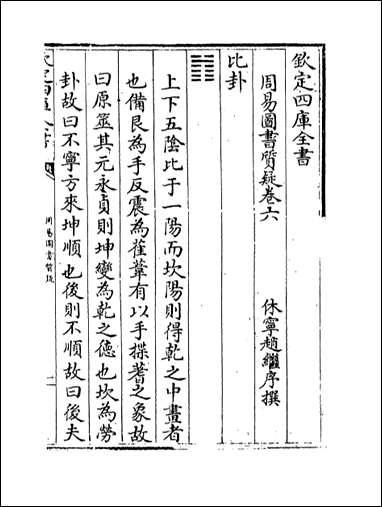 欽定四庫全書
周易圖書質疑卷六
休寧趙繼序撰
比卦
上下五陰比于一陽而坎陽則得乾之中畫者
也備艮為手反震為萑葦有以手揲蓍之象故
曰原筮其元永貞則坤變為乾之德也坎為勞
卦故曰不寧方來坤順也後則不順故曰後夫
周易圖書質疑
一